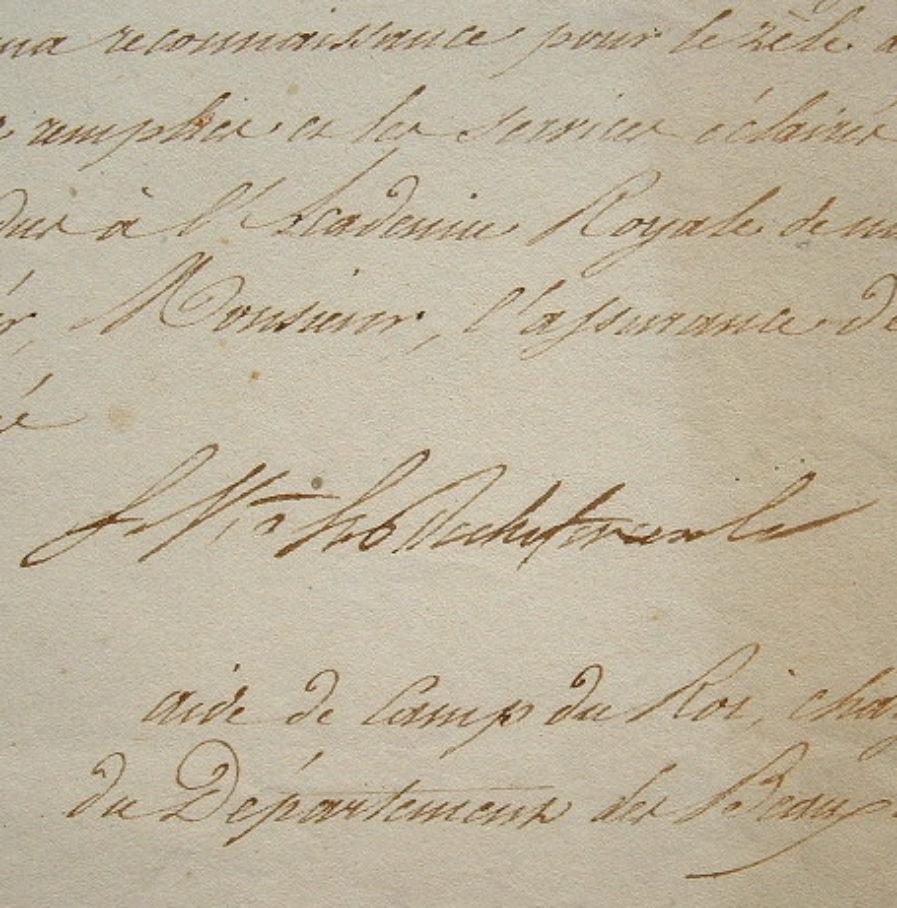 ma reconnaissance pour le zèle a
remplies et les services éclairés
dus à l'Académie Royale de mu
Monsieur, l'assurance de
Le Vte de La Rochefoucauld
aide de Camp du Roi, char
du Département des Beaux